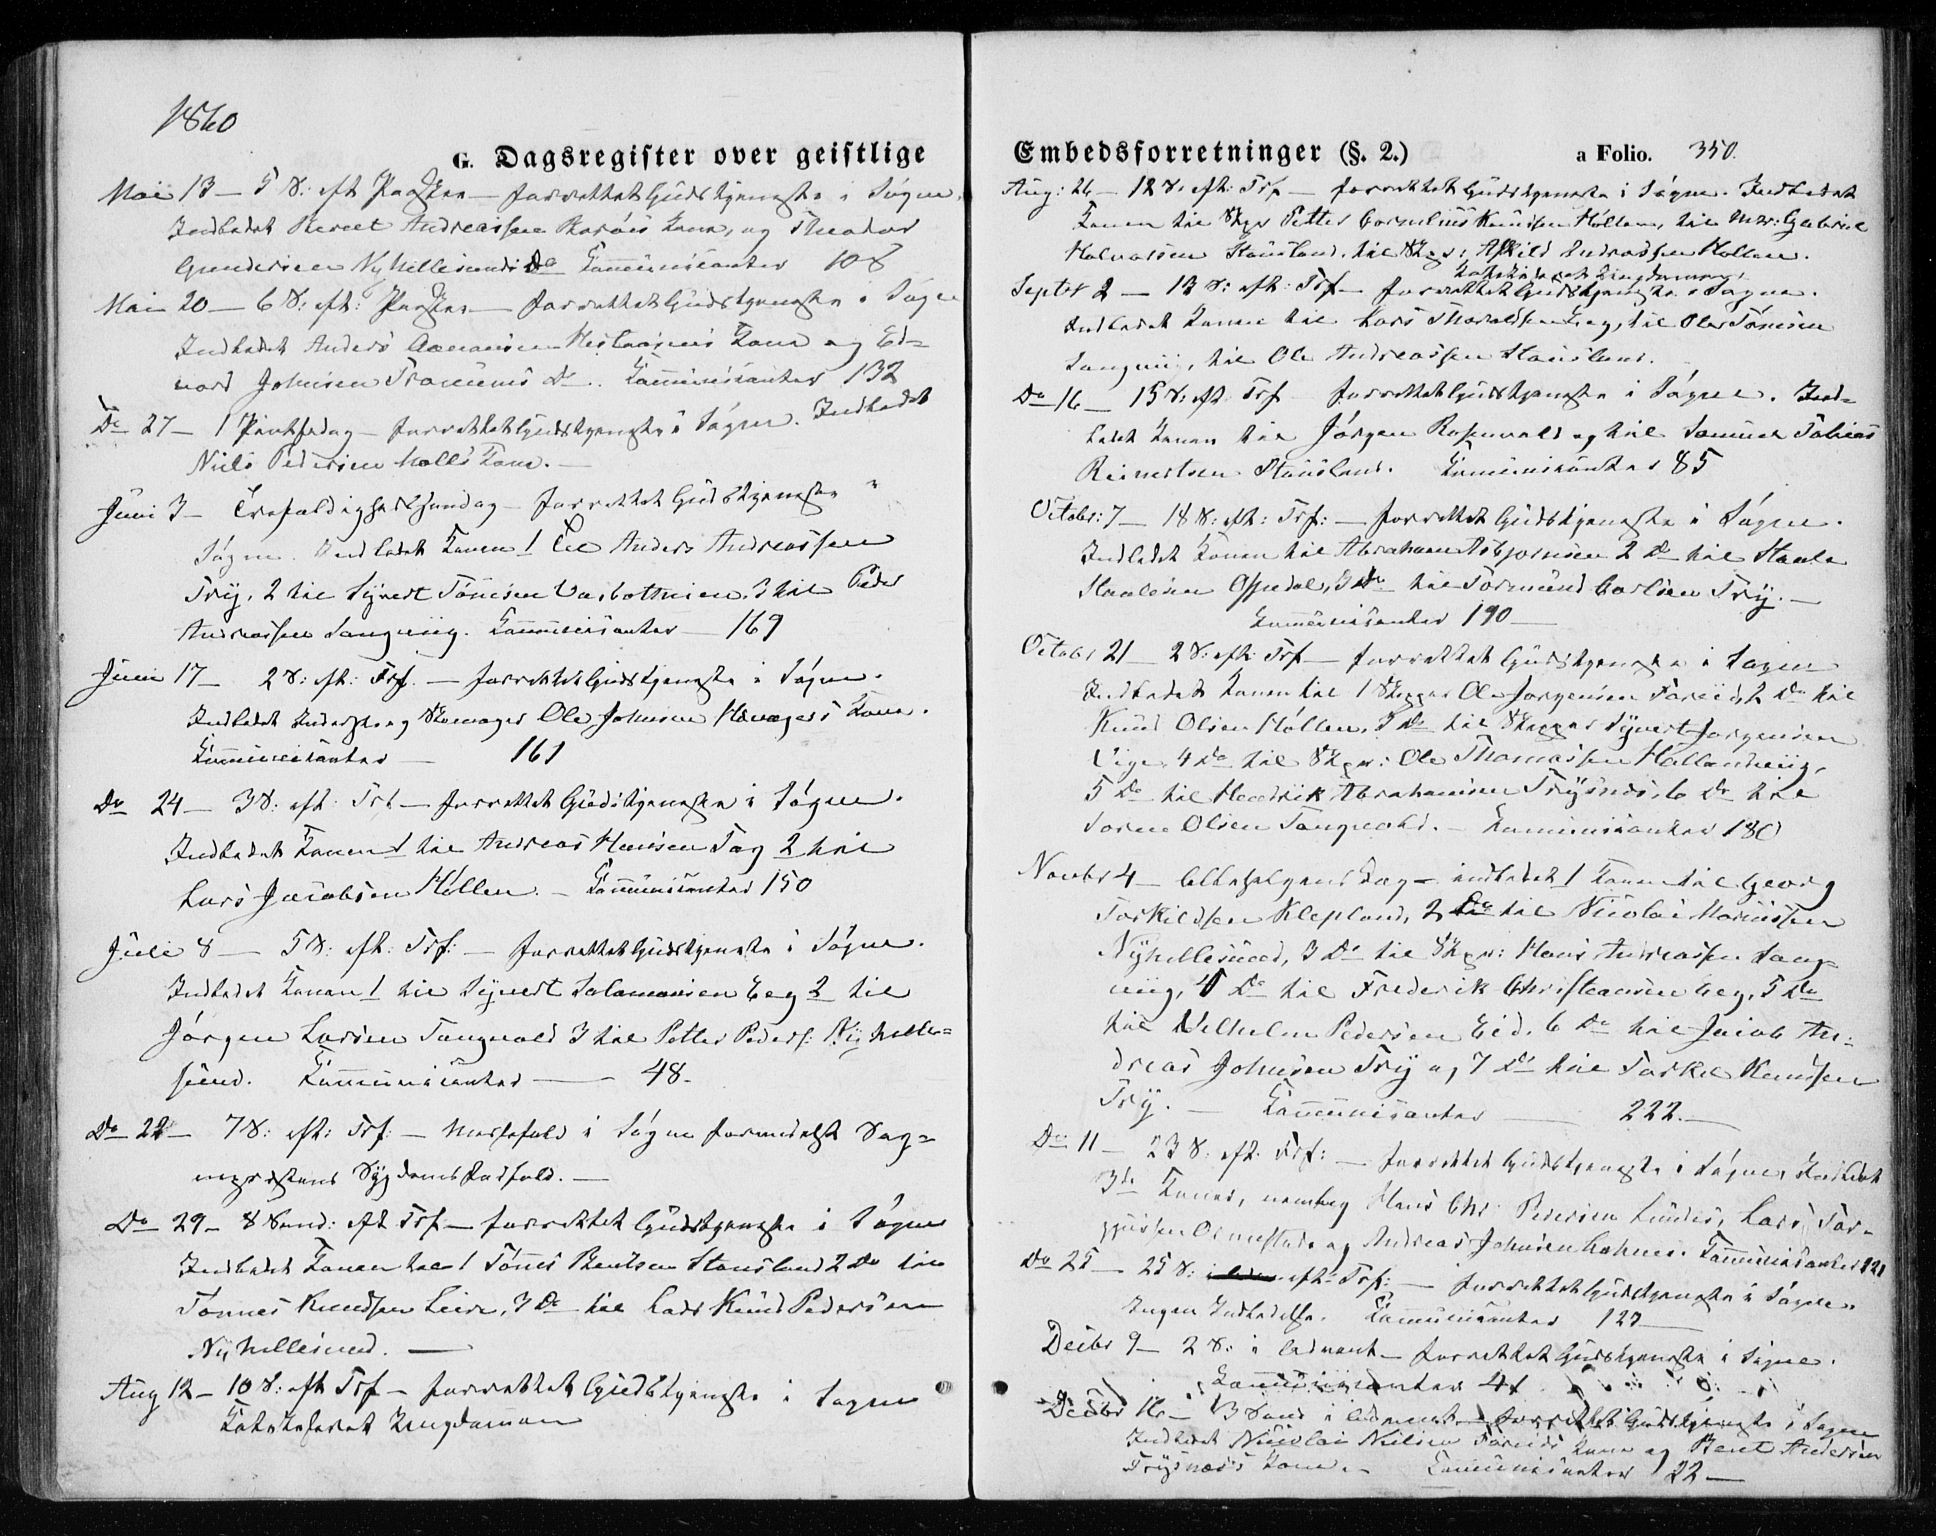 1860
G. Dagsregister over geistlige
Mai 13 — 5 S: eft Paaske — forrettet Gudstjeneste i Søgne.
Indledet Bernt Andreassen Kone, og Theodor
Gundersen Ny Hellesunds Do Communicanter 108
Mai 20 — 6 S: eft: Paaske — forrettet Gudstjeneste i Søgne
Indledet Anders Kone og Ed-
vard Johnsen Do. Communicanter 132
Do 27 — 1 Pintsedag — forrettet Gudstjeneste i Søgne. Indledet
Niels Pedersen Kone. —
Juni 3 — Trefoldighedssøndag — forrettet Gudstjeneste i
Søgne. Indledet Konen 1 til Anders Andreassen
Try, 2 til Syvert Tønnesen 3 til Peder
Andreassen Langenes. Communicanter — 169
Juni 17 — 2 S: eft: Trf. — forrettet Gudstjeneste i Søgne.
Indledet og Ole Johnsen Kone.
Communicanter — 161
Do 24 — 3 S: eft Trf — forrettet Gudstjeneste i Søgne.
Indledet Konen 1 til Andreas Hansen Tag 2 til
Lars Jacobsen Høllen. — Communicanter 150
Juli 8 — 5 S: eft: Trf: — forrettet Gudstjeneste i Søgne.
Indledet Konen 1 til Syvert Salamonsen Eeg 2 til
Jørgen Larsen Tangvald 3 til Petter Peders: Ny Helle-
sund. Communicanter — 48.
Do 22 — 7 S: eft: Trf: — Messefald i Søgne formedelst Sog-
nepræstens Sygdomsforfald. —
Do 29 — 8 Sønd: eft Trf — forrettet Gudstjeneste i Søgne
Indledet Konen til 1 Tønnes Bentsen Stausland 2 Do til
Tønnes Knudsen Leire, 3 Do til Lars Knud Pedersen
Ny Hellesund. —
Aug 12 — 10 S: eft Trf — forrettet Gudstjeneste i Søgne
Katekiseret Ungdommen
Embedsforretninger (§. 2.) a Folio. 350.
Aug: 26 — 12 S: eft: Trf — forrettet Gudstjeneste i Søgne. Indledet
Konen til Skpr Petter Cornelius Knudsen Høllen, til Gabriel
Halvorsen Stausland, til Skpr: Andreassen Høllen.
Katekiseret Ungdommen.
Septbr 2 — 13 S: eft: Trf — forrettet Gudstjeneste i Søgne.
Indledet Konen til Lars Eeg, til Ole Tønnesen
til Ole Andreassen Stausland.
Do 16 — 15 S: eft Trf forrettet Gudstjeneste i Søgne. Ind-
ledet Konen til Jørgen Rosenvold og til Samuel Tobias
Reinertsen Stausland. Communicanter 85
Octobr: 7 — 18 S: eft: Trf: — forrettet Gudstjeneste i Søgne.
Indledet Konen til Abraham Asbjørnsen 2 Do til
3 Do til Tormund Carlsen Try. —
Communicanter 190 —
Octobr 21 — 2 S: eft: Trf — forrettet Gudstjeneste i Søgne
Indledet Konen til 1 Skipper Ole Jørgensen 2 Do til
Knud Olsen Høllen, 3 Do til Skipper Syvert Jørgensen
4 Do til Skpr: Ole Thomassen Hallandvig,
5 Do til Hendrik Abrahamsen Trysnes, 6 Do til
Olsen Tangvald. — Communicanter 180
Novbr 4 — Allehelgens Dag — indledet 1 Konen til Georg
Torkildsen Klepland, 2 Do til Nicolai
Nyhellesund, 3 Do til Skpr: Hans Andreassen
4 Do til Frederik Christensen Eeg, 5 Do
til Vilhelm Pedersen Eid, 6 Do til Jacob An-
dreas Johnsen Try og 7 Do til Torkel Knudsen
Try. — Communicanter — 222. —
Do 11 — 23 S: eft: Trf: — forrettet Gudstjeneste i Søgne, Indledet
3de Koner, nemlig Hans Chr: Pedersen Lundes, Lars Tor-
og Andreas Johnsen Communicanter 121
Do 25 — 25 S: eft: Trf: — forrettet Gudstjeneste i Søgne.
Ingen Indledelse. Communicanter 127 —
Decbr 9 — 2 S: i Advent — forrettet Gudstjeneste i Søgne.
Communicanter 41
Decbr 16 — 3 Sønd i Advent — forrettet Gudstjeneste i Søgne
Indledet Nicolai Nielsen Kone og Bent Andersen
Trysnæs's Kone. — Communicanter 22 —